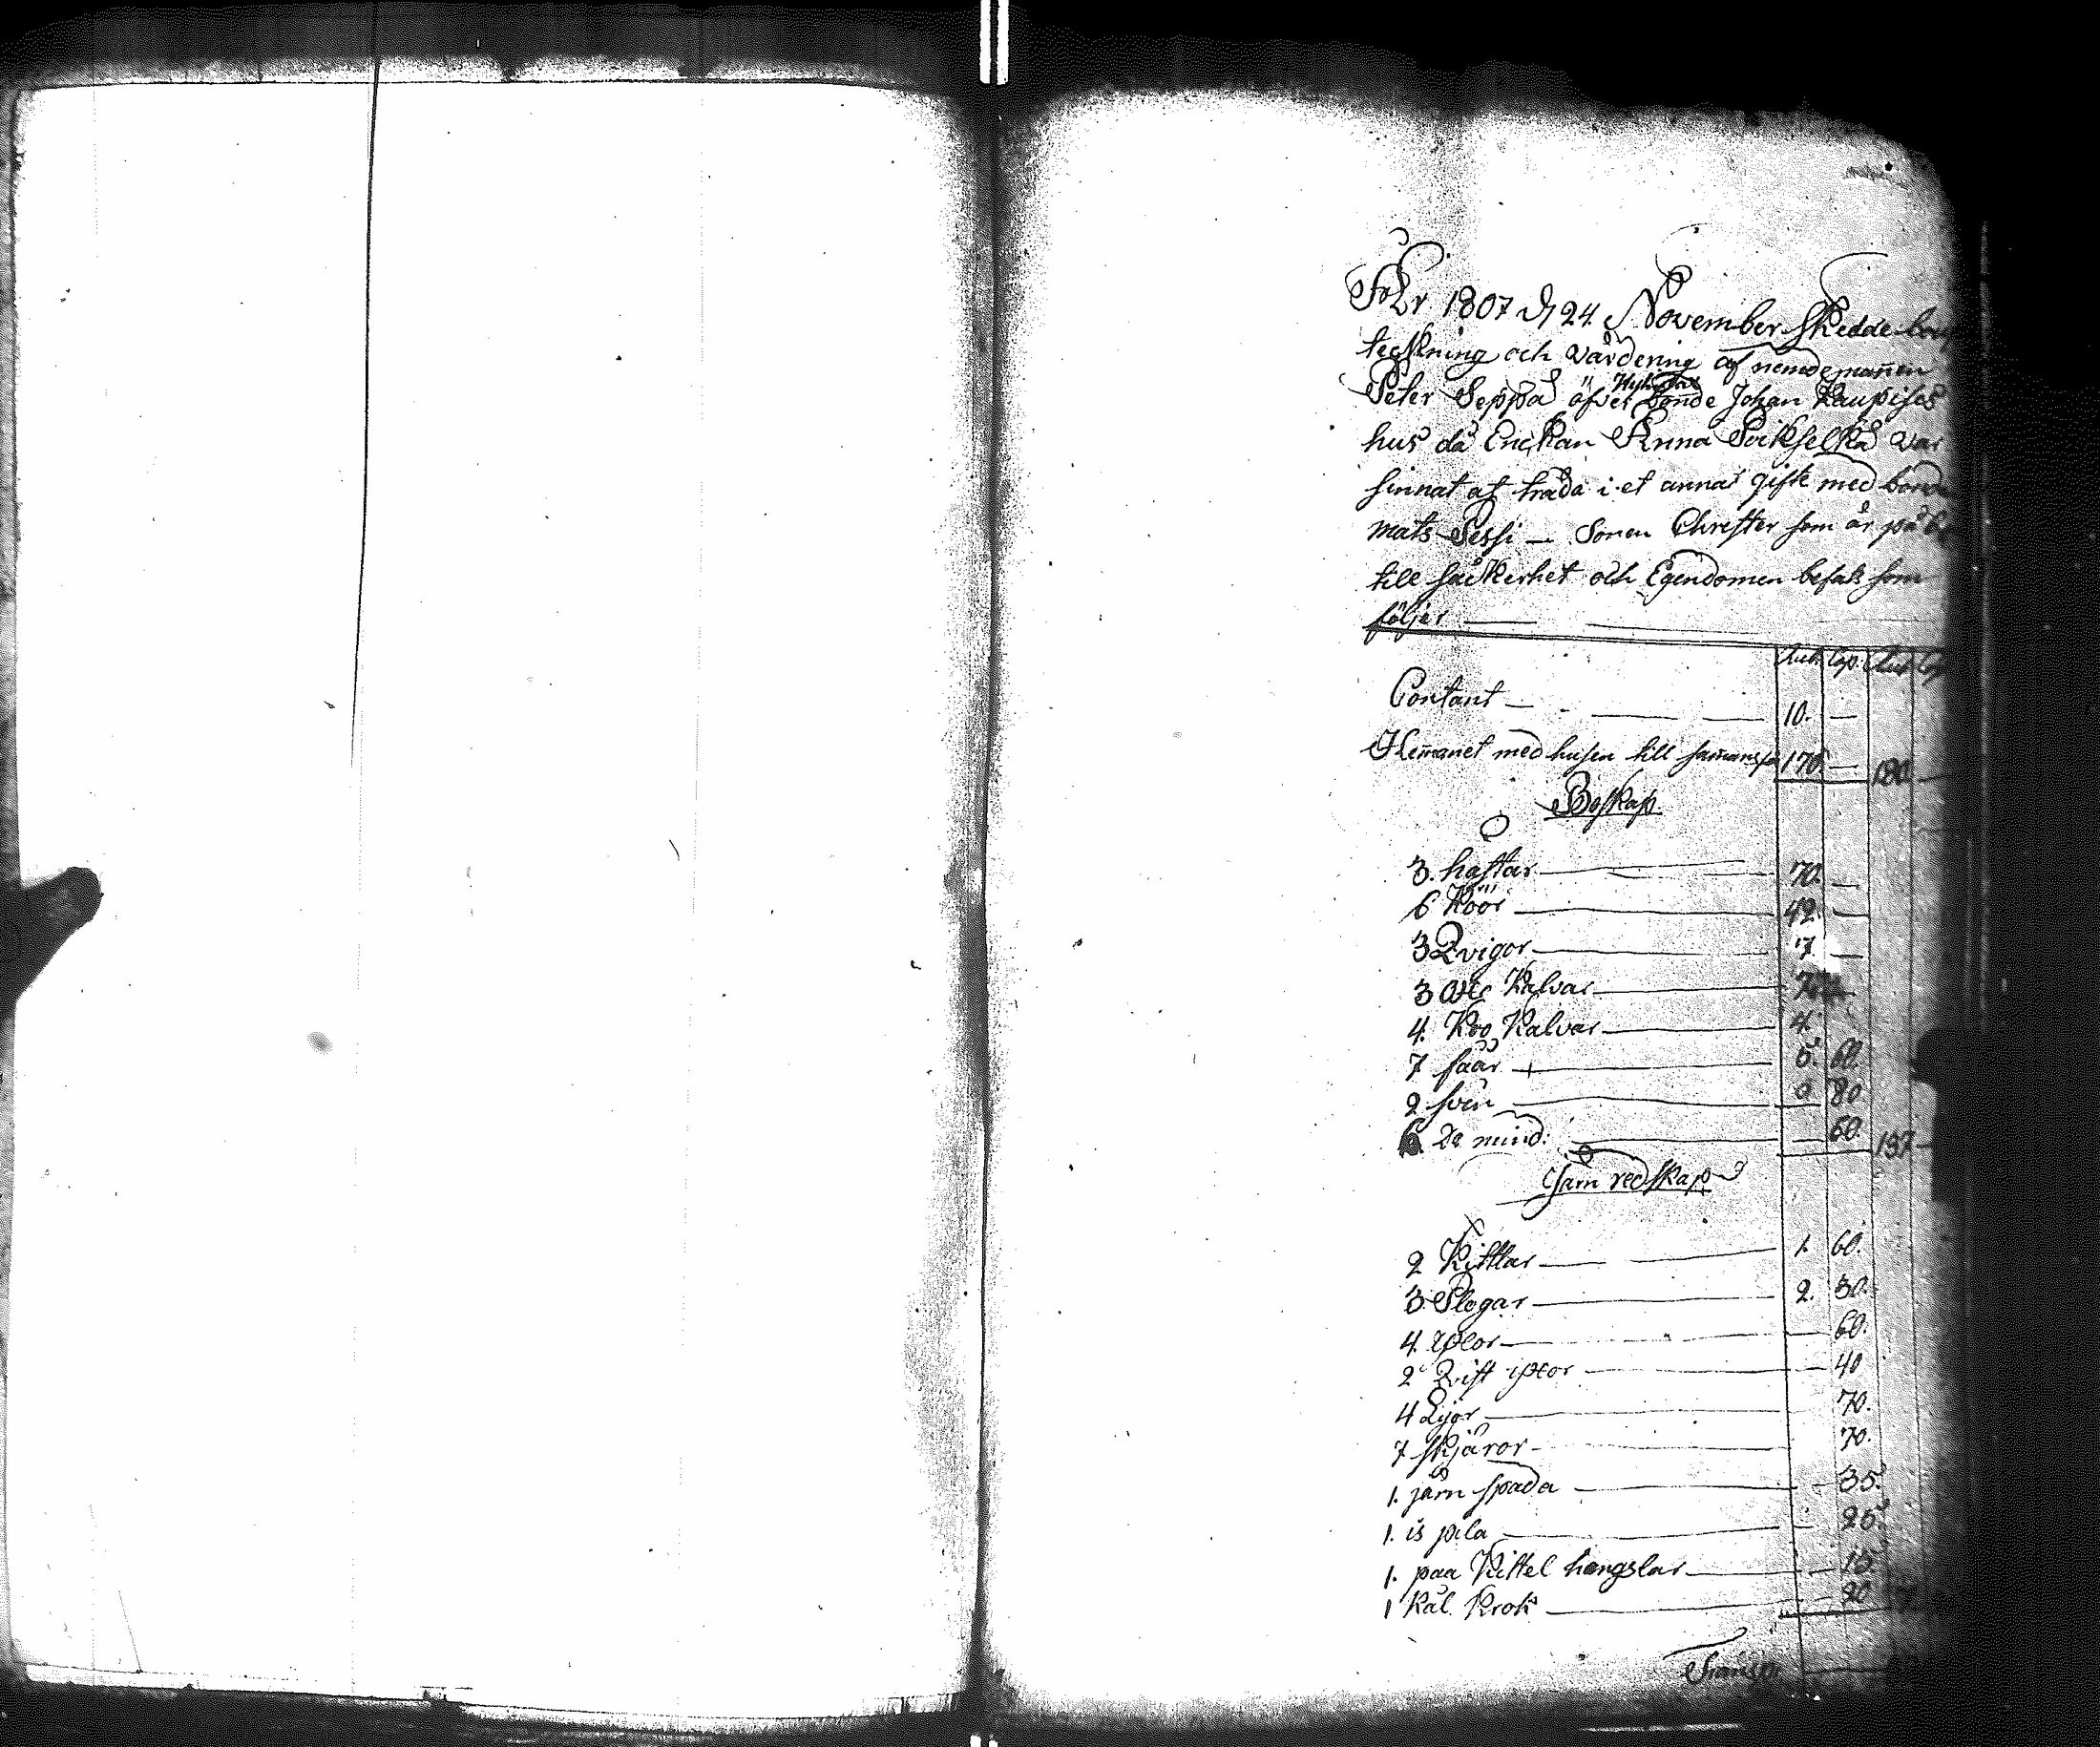 År 1807 d 24 November skedde
teckning och värdering af nemdemannen
Peter Seppä öfver bonde Johan Kaupises
hus då Enckan Anna Peikselkä var
sinnat at träda i et annat gifte med
mats Sessi — Sonen Christer som är på
till säkerhet och Egendomen befats som
följer
Rub. Cop. Rub Cop
Contant 10. —
Hemanet med husen till samans 170 — 180 —
Boskap
3. hästar 70. —
6 Köör 42 —
3 Qvigor 7 —
3 Kalvar 7
4. Koo Kalvar 4.
7 fäär 5. 60.
2 svin 0 80
6 De mind: 60. 137 —
Järn redskap
2 Kittlar 1. 60.
3 Plogar 2. 30.
4. yxor 60.
2 Qvist yxor 40
4 Lijor 70.
7 skjäror 70.
1. järn spada 35.
1. is pila 25.
1. paa Kittel hängslar 15
1 Kål Krok 20 7
Transp